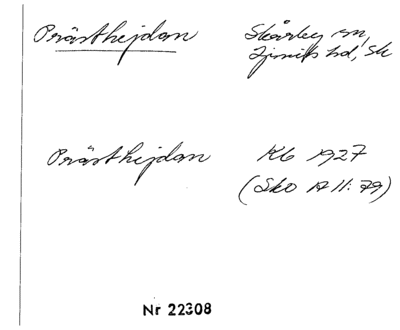 Prästhejdan Skårby sn,
Ljunits hd, Sk
Prästhejdan Kb 1927
(Sko A II: 79)
Nr 22308